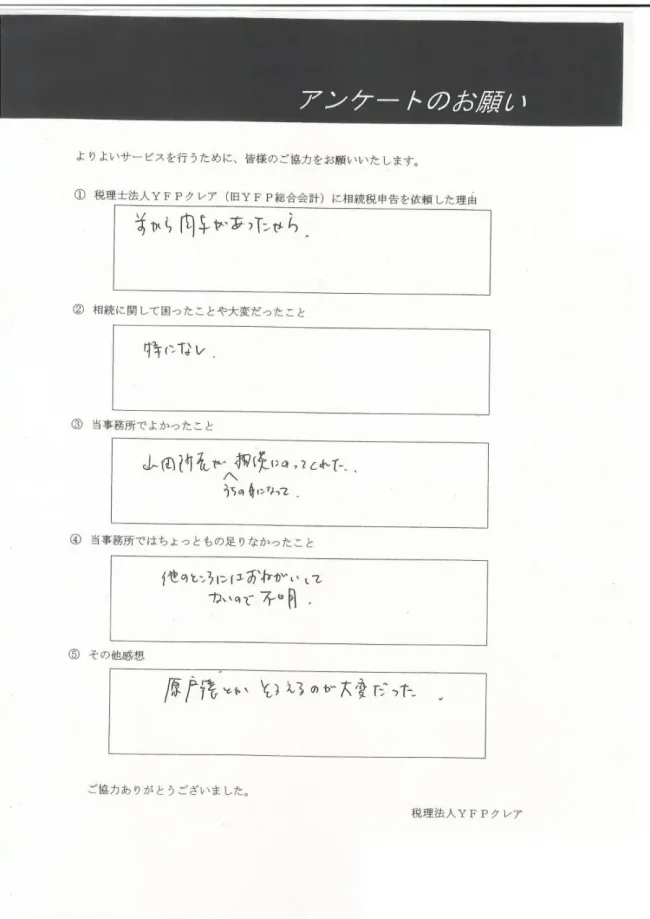 アンケートのお願い
よりよいサービスを行うために、皆様のご協力をお願いいたします。
① 税理士法人ＹＦＰクレア（旧ＹＦＰ総合会計）に相続税申告を依頼した理由
前から関与があったから.
② 相続に関して困ったことや大変だったこと
特になし.
③ 当事務所でよかったこと
山田所長が 相談にのってくれた.
うちの身になって.
④ 当事務所ではちょっともの足りなかったこと
他のところにはおねがいして
ないので不明.
⑤ その他感想
原戸籍とか そろえるのが大変だった.
ご協力ありがとうございました。
税理法人ＹＦＰクレア